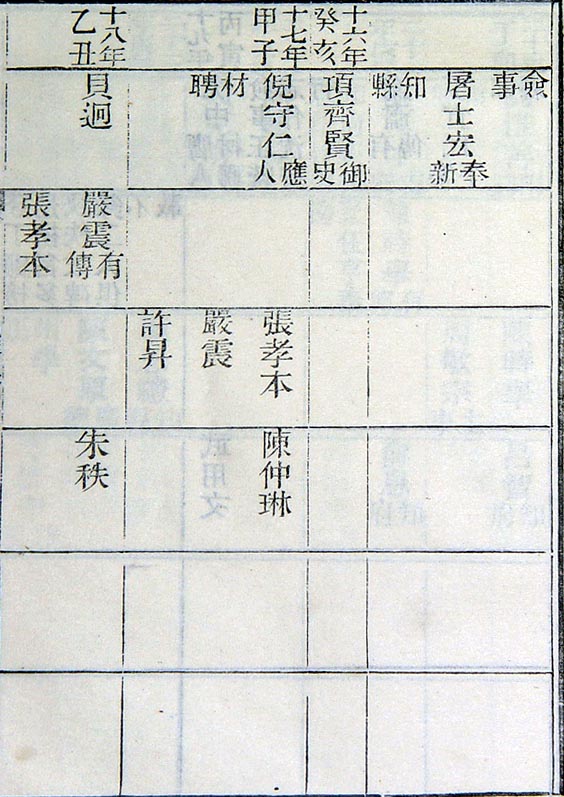 僉事
屠士宏奉新
知縣
十六年癸亥
項齊賢御史
十七年甲子
倪守仁應人
材聘
張孝本
嚴震
許昇
陳仲琳
十八年乙丑
貝迥
嚴震有傳
張孝本
朱秩